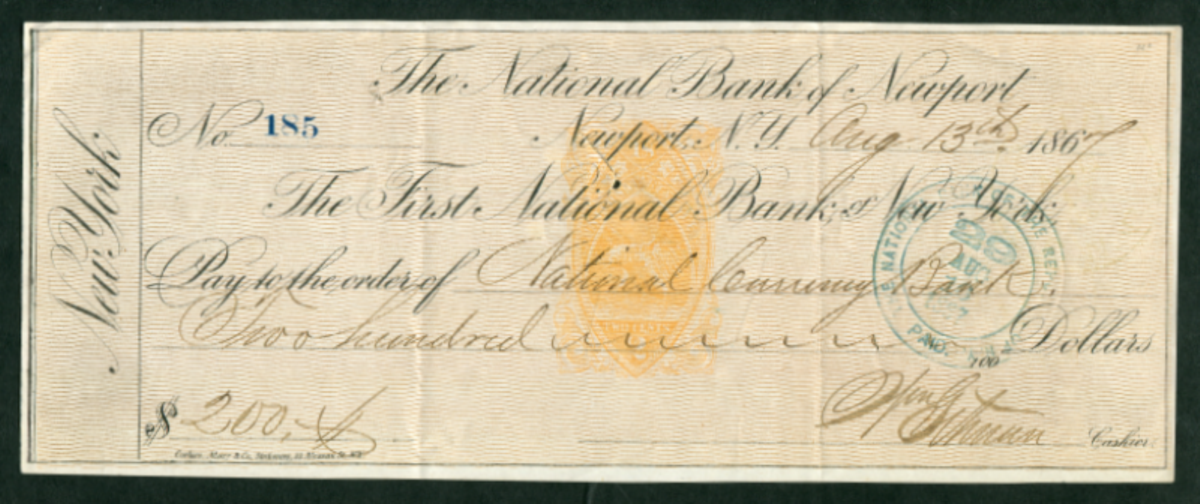 The National Bank of Newport
No. 185
Newport, N.Y. Aug 13th 1867
The First National Bank, of New York.
Pay to the order of National Currency Bank
Two hundred
Dollars
100
$ 200.
Wm
Cashier.
New York
29
AUG
PAID